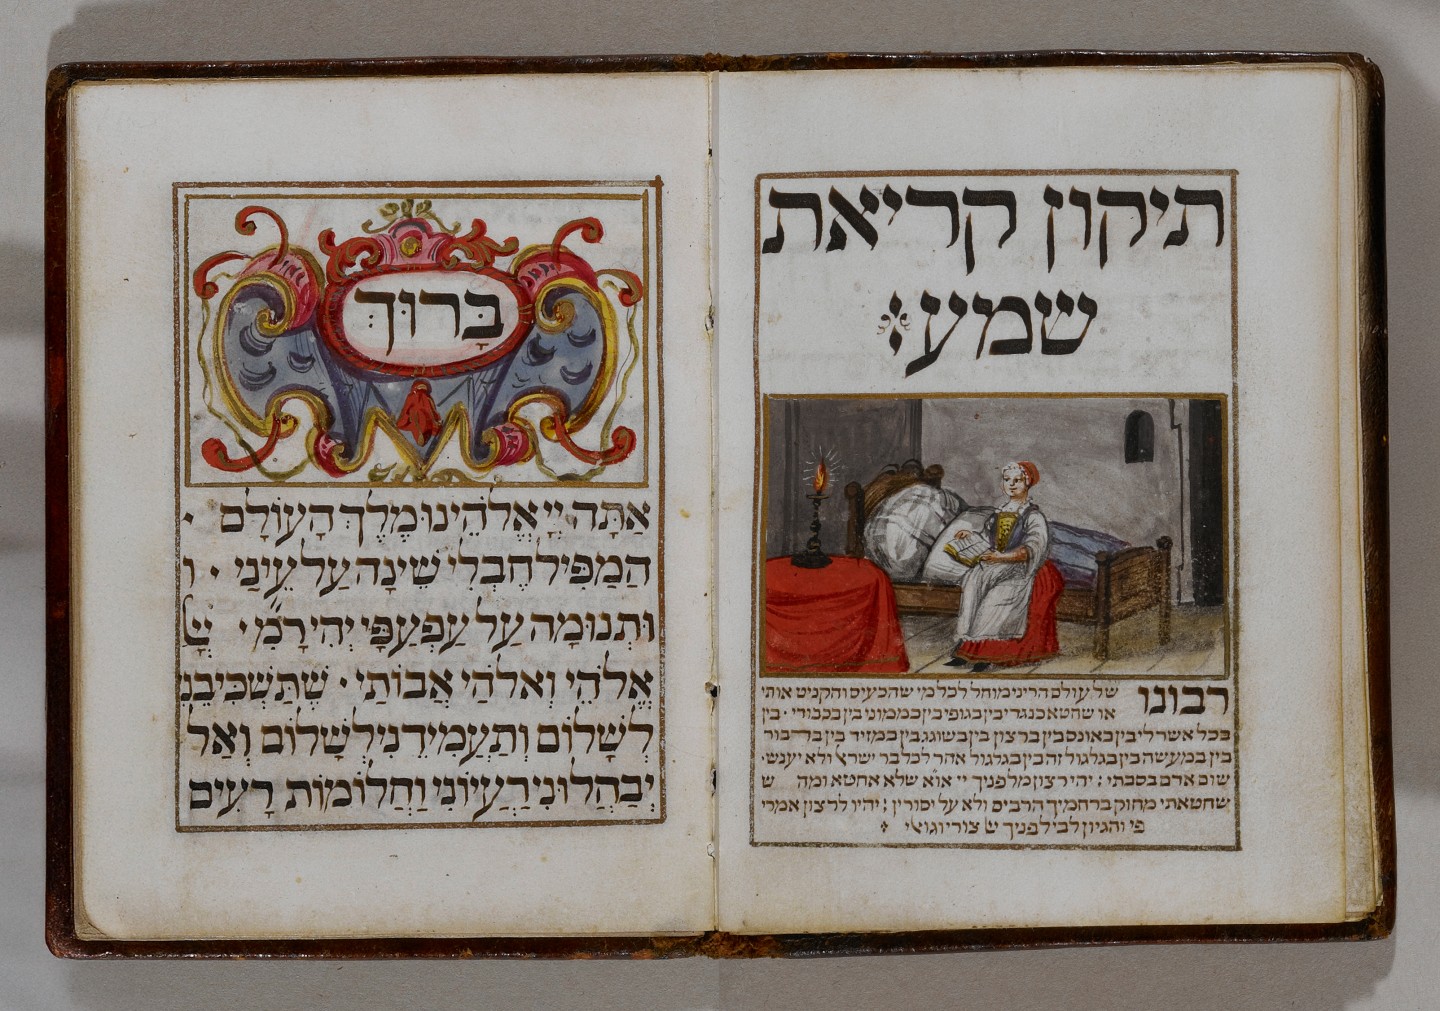 תיקון קריאת
שמע
רבונו של עולם הריני מוחל לכל מי שהכעיס והקניט אותי
או שחטא כנגדי בין בגופי בין בממוני בין בכבודי · בין
בכל אשר לי בין באונס בין ברצון בין בשוגג בין במזיד בין בדבור
בין במעשה בין בגלגול זה בין בגלגול אחר לכל בר ישראל ולא יענש·
שום אדם בסבתי : יהי רצון מלפניך יי או״א שלא אחטא ומה ש
שחטאתי מחוק ברחמיך הרבים ולא על יסורין : יהיו לרצון אמרי
פי והגיון לבי לפניך יי צורי וגואלי :
בָּרוּךְ:
אַתָּה יְיָ אֱלֹהֵינוּ מֶלֶךְ הָעוֹלָם ·
הַמַפִּיל חֶבְלֵי שֵׁינָה עַל עֵינַי · ו
וּתְנוּמָה עַל עַפְעַפָּי יְהִי רָ מִ׳
אֱלֹהַי וֵאלֹהֵי אֲבוֹתַי · שֶׁתַּשְׁכִּיבֵנִי
לְשָׁלוֹם וְתַעֲמִידֵנִי לְשָׁלוֹם וְאַל
יְבַהֲלוּנִי רַעְיוֹנַי וַחֲלוֹמוֹת רָעִים